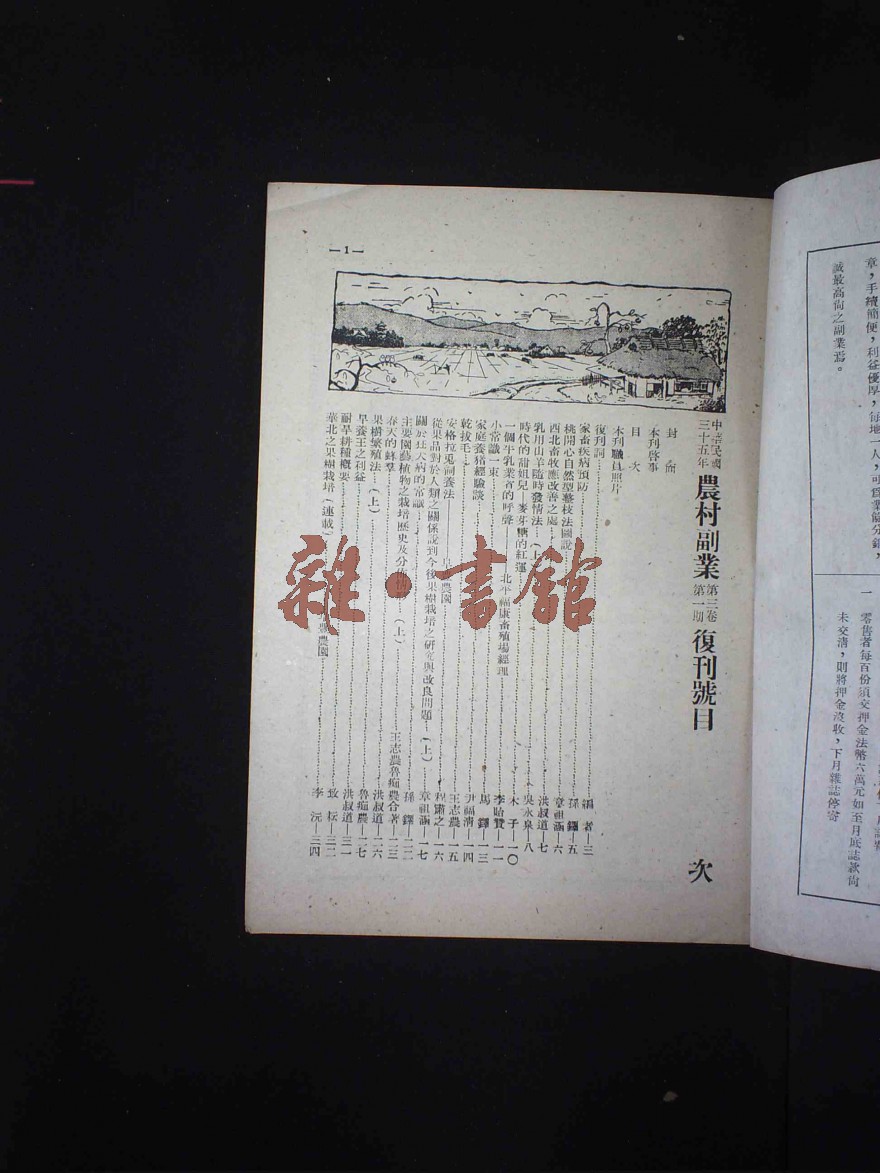 章，手續簡便，利益優厚，每地一人，可
誠最高尙之副業焉。
一　零售者每百份須交押金法幣六萬元如至月底誌款尙
未交清，則將押金沒收，下月雜誌停寄
—1—
中華民國三十五年　農村副業　第三卷第一期　復刊號目次
封面
本刊啓事
目次
本刊職員照片
復刊詞……編者—三
家畜疾病預防……孫鐸—五
桃開心自然型整枝法圖說……章祖涵—六
西北畜牧應改善之處……洪叔道—七
乳用山羊隨時發情法（上）……吳永泉—八
時代的甜姐兒—麥芽糖的紅運……木子—一〇
一個牛乳業者的呼聲……北平福康畜殖場經理　李貽贊—一一
小常識一束……
家庭養猪經驗談……馬鐸—一三
乾拔毛……尹福淸—一四
安格拉兎飼養法……農園　王志農—一五
從果品對於人類之關係說到今後果樹栽培之研究與改良問題（上）……之—一六
關於狂犬病的常識……章祖涵—一七
主要園藝植物之栽培歷史及分（上）……孫鐸—二二
春天的蜂羣……王志農魯痴農合著—二三
果樹繁殖法（上）……洪叔道—二六
早養王之利益……魯痴農—二七
耐旱耕種槪要……洪叔道—三一
華北之果樹栽培（連載）……農園　致耘—三二
李沅—三四
雜·書館